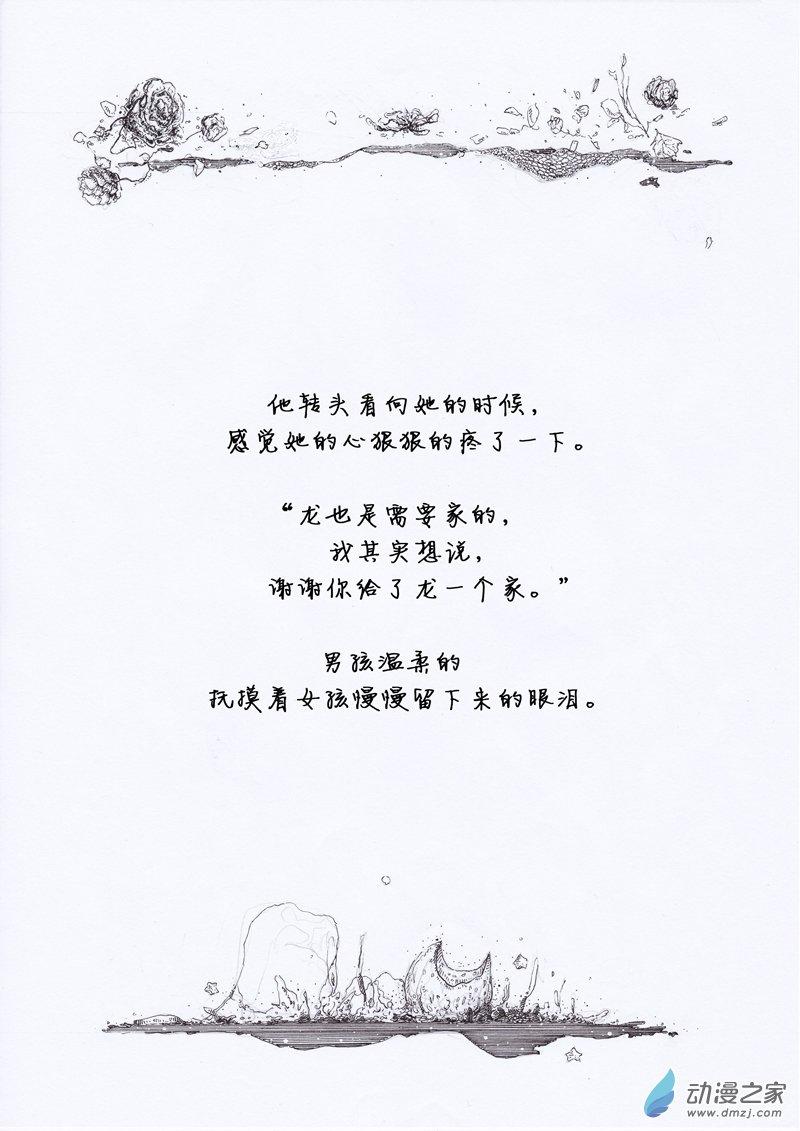 他转头看向她的时候，
感觉她的心狠狠的疼了一下。
“龙也是需要家的，
我其实想说，
谢谢你给了龙一个家。”
男孩温柔的
抚摸着女孩慢慢留下来的眼泪。
动漫之家
www.dmzj.com